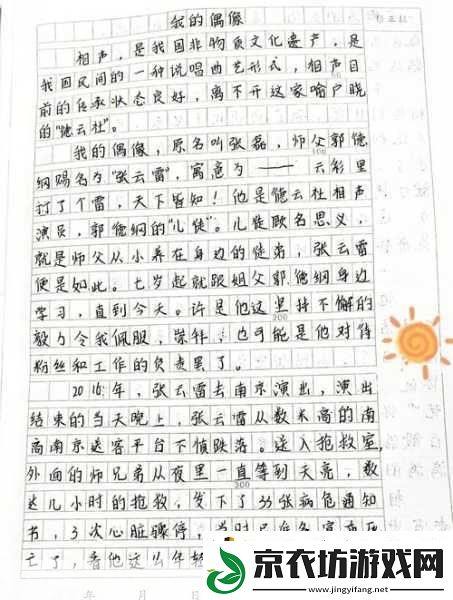 我的偶像
相声，是我国非物质文化遗产，是
我国民间的一种说唱曲艺形式，相声目
前的传承状态良好，离不开这家喻户晓
的“德云社”。
我的偶像，原名叫张磊，师父郭德
纲赐名为“张云雷”，寓意为——云彩里
打了个雷，天下皆知！他是德云社相声
演员，郭德纲的“儿徒”。儿徒顾名思义，
就是师父从小养在身边的徒弟，张云雷
便是如此。七岁起就跟姐父郭德纲身边
学习，直到今天。许是他这坚持不懈的
毅力令我佩服，崇拜，也可能是他对待
粉丝和工作的负责罢了。
2016年，张云雷去南京演出，演出
结束的当天晚上，张云雷从数米高的南
高南京送客平台下慎跌落。送入抢救室，
外面的师兄弟从夜里一直等到天亮，数
达几小时的抢救，发下了33张病危通知
书，3次心脏骤停，当时
亡了，看他这么年轻
100
200
300
年 月 日
京农坊游戏网
www.jingyifang.net